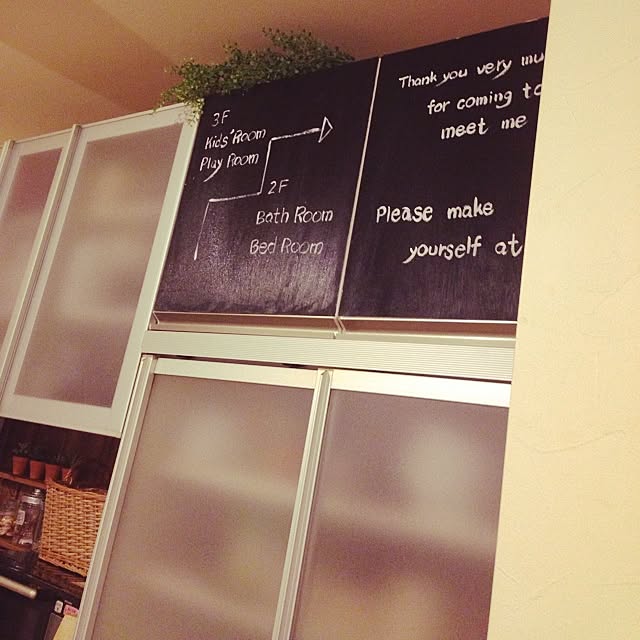 3F
Kids' Room
Play Room
2F
Bath Room
Bed Room
Thank you very
for coming
meet me
Please make
yourself at